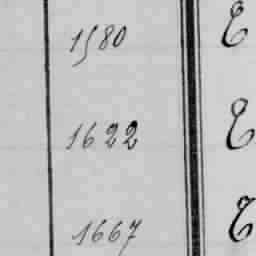 1580 E
1622 E
1667 E